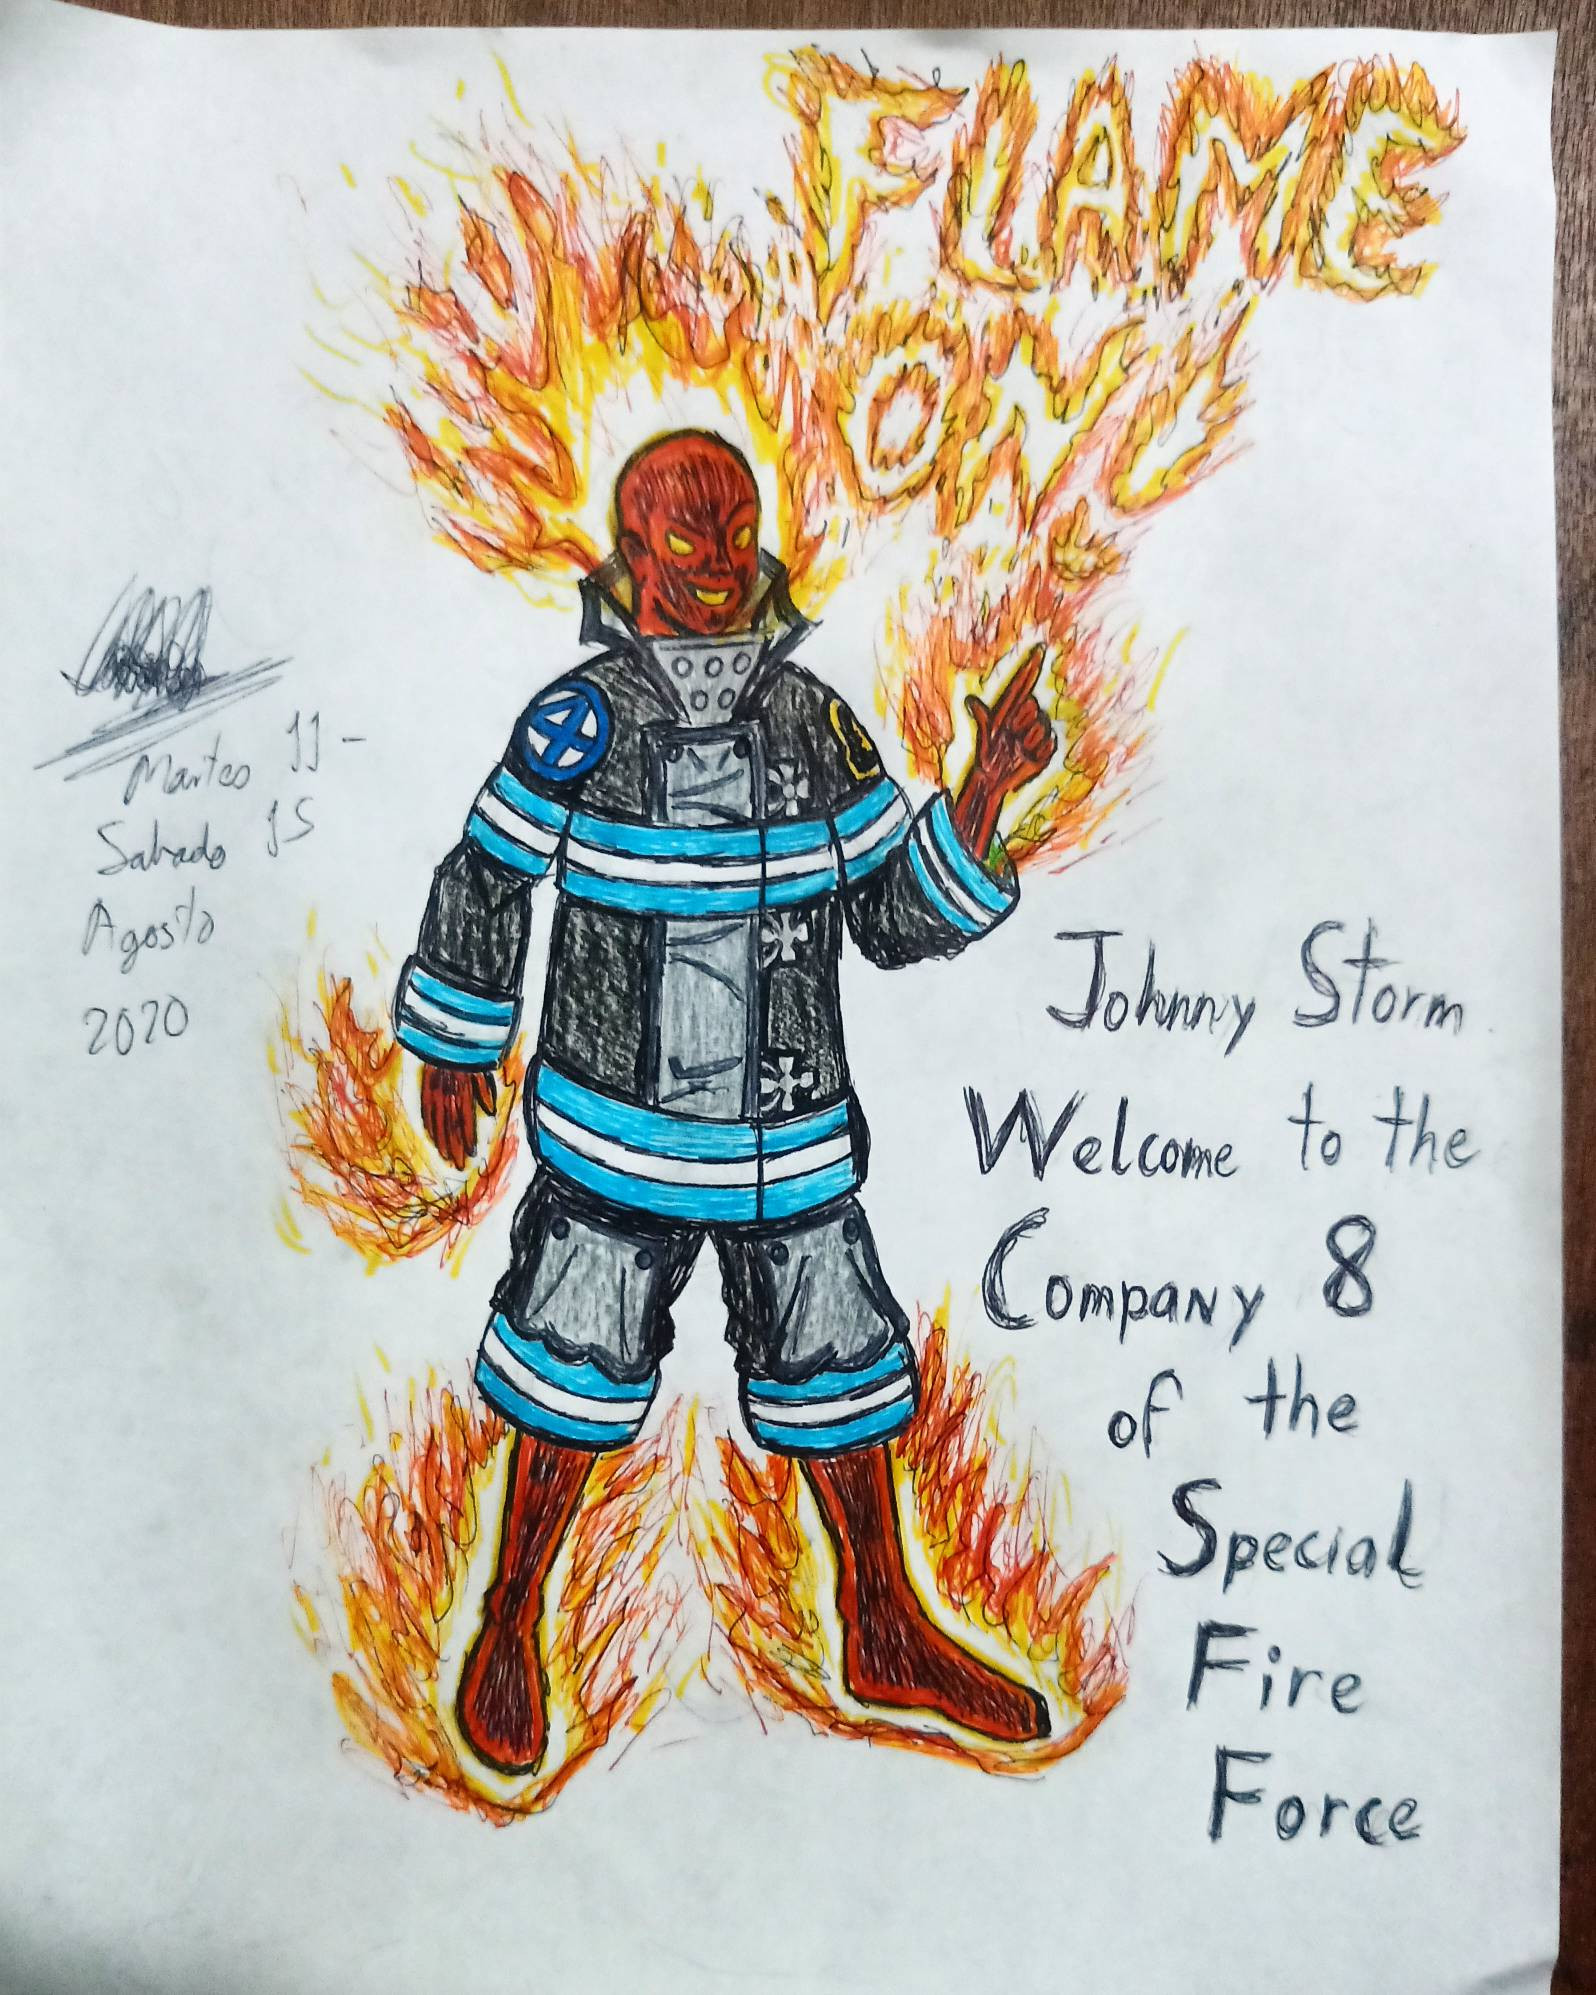 FLAME
ON!
Martes 11-
Sabado 15
Agosto
2020
4
Johnny Storm
Welcome to the
Company 8
of the
Special
Fire
Force